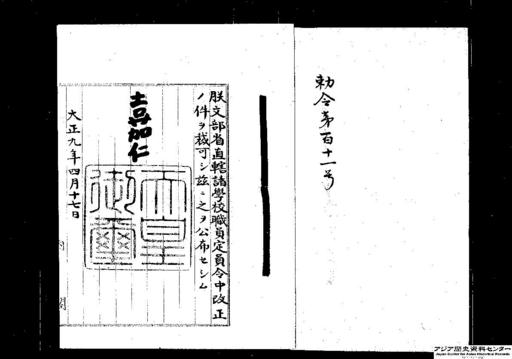 勅令第百十一号
朕文部省直轄諸学校職員定員令中改正
ノ件ヲ裁可シ茲ニ之ヲ公布セシム
嘉仁
天皇御璽
大正九年四月十七日
アジア歴史資料センター
Japan Center for Asian Historical Records